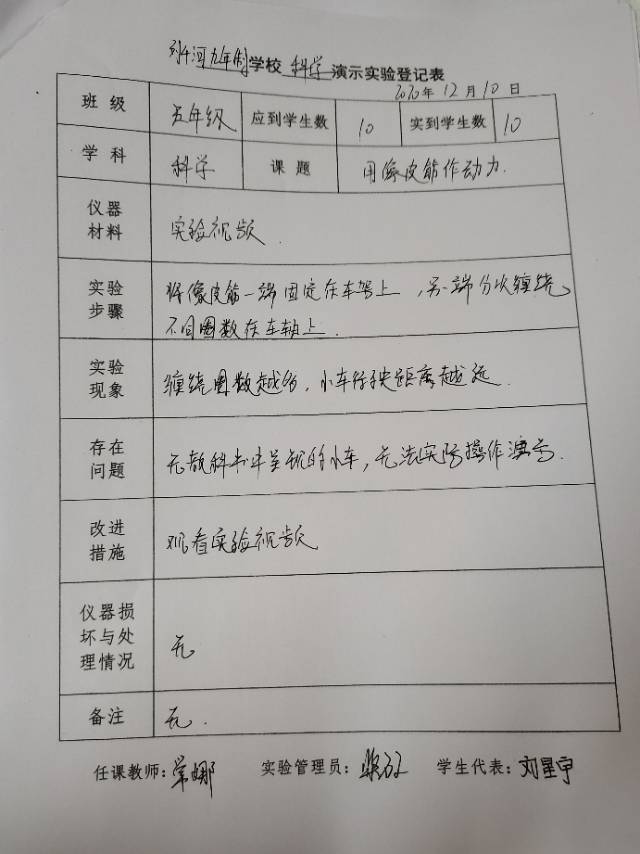 九年制学校 科学 演示实验登记表
2020年12月10日
班级 五年级 应到学生数 10 实到学生数 10
学科 科学 课题 用像皮筋作动力.
仪器
材料
实验视频.
实验
步骤
将像皮筋一端固定在车驾上，另一端分次缠绕
不同圈数在车轴上.
实验
现象
缠绕圈数越多，小车行驶距离越远.
存在
问题
无教科书中呈现的小车，无法实际操作演示.
改进
措施
观看实验视频
仪器损
坏与处
理情况
无
备注 无.
任课教师：常娜 实验管理员： 学生代表：刘星宇